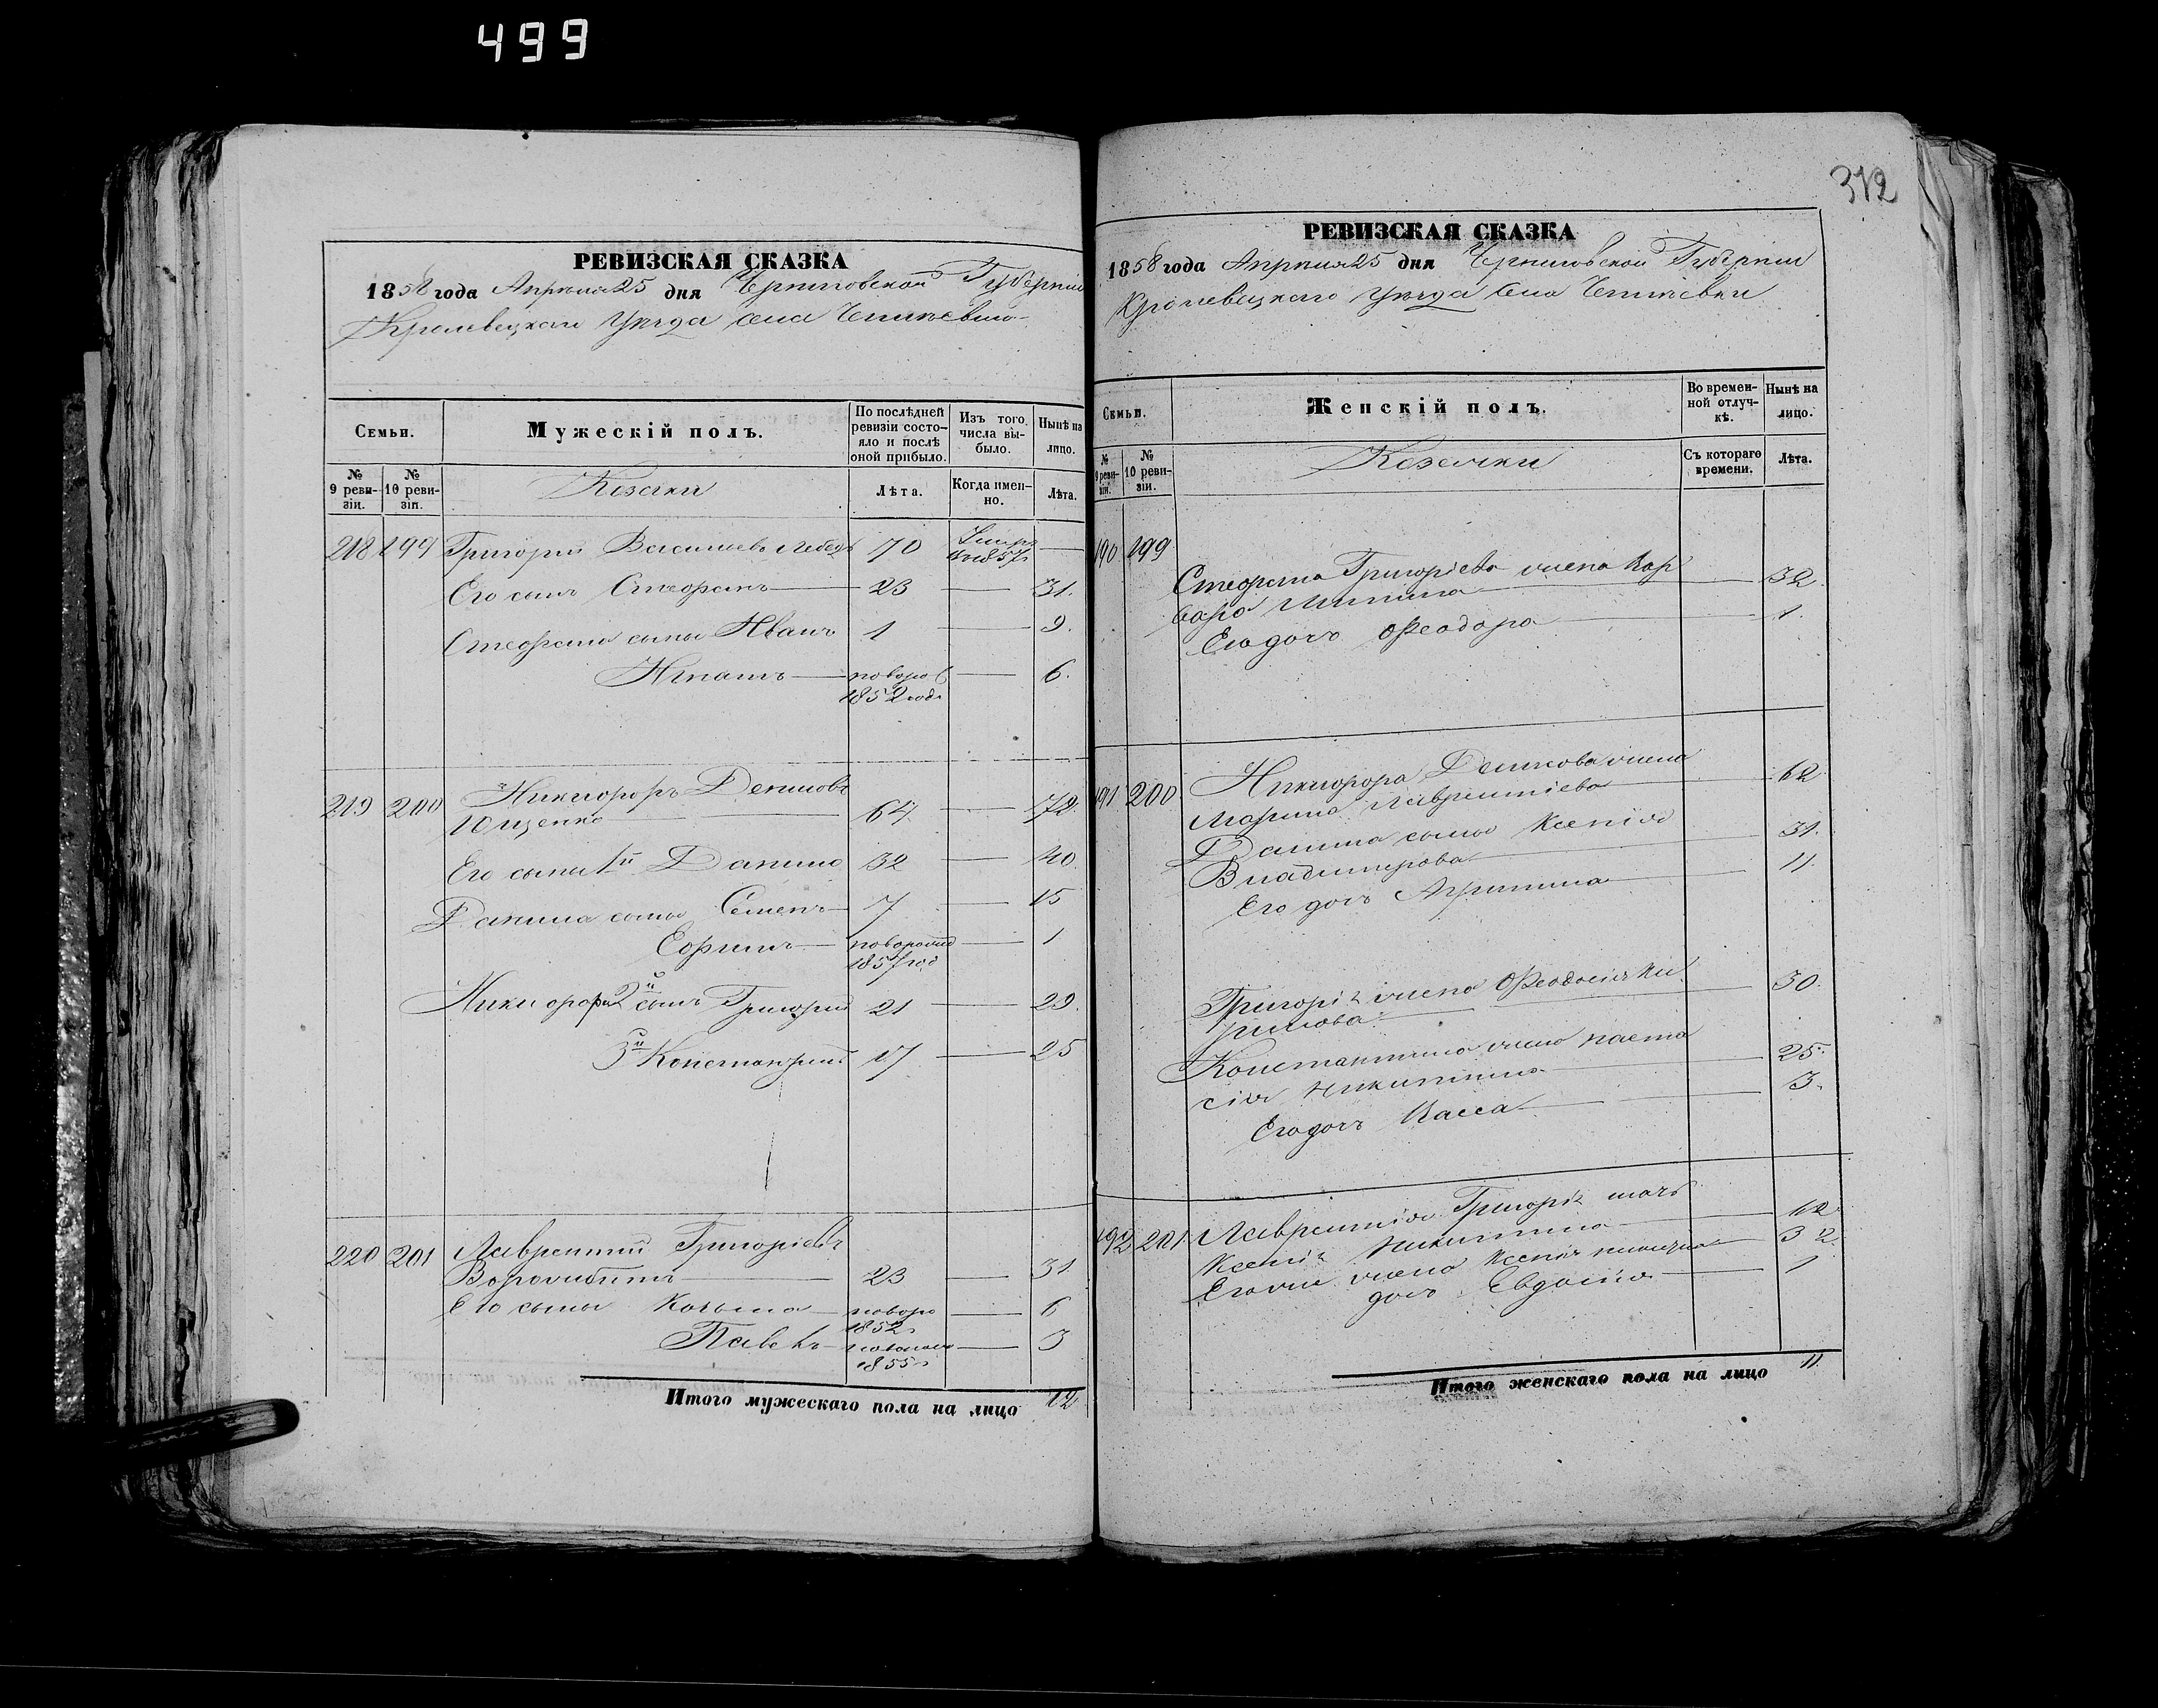 499
РЕВИЗСКАЯ СКАЗКА
1858 года Апреля 25 дня Черниговской Губернии
Кролевецкаго Уезда села
Семьи.
Мужескій полъ.
По послѣдней ревизіи состо-
яло и послѣ
оной прибыло.
Изъ того
числа вы-
было.
Нынѣ на
лицо.
№
9 реви-
зіи.
№
10 реви-
зіи.
Козаки
Лѣта.
Когда имен-
но.
Лѣта.
218 199 Григорий Васильевъ 70 —
Его сынъ Стефанъ — 23 — 31.
Стефана сыны Иванъ 1 — 9.
Игнатъ — новорож — 6.
1852 года
219 200 Никифоръ Денисовъ
Ющенко — 64 — 72.
Его сыны 1й Данило 32 — 40.
Данила сыны Семенъ — 7 — 15
Ефимъ — новорожд — 1
1857 год
Никифора 2й сынъ Григорий 21 — 29.
3й Константинъ 17 — 25
220 201 Лаврентий Григориевъ
23 — 31
Его сыны Козьма — новоро — 6
1852
Павелъ — — 3
1855
Итого мужескаго пола на лицо 12
312
РЕВИЗСКАЯ СКАЗКА
1858 года Апреля 25 дня Черниговской Губернии
Кролевецкаго Уезда села
Семьи.
Женскій полъ.
Во времен-
ной отлуч-
кѣ.
Нынѣ на
лицо.
№
9 реви-
зіи.
№
10 реви-
зіи.
Козачки
Съ котораго
времени.
Лѣта.
190 199
Стефана Григоріева жена Вар
вара — 32.
Его дочь Феодора — 1.
191 200 Никифора Денисова жена
Марина Лаврентіева — 62
Данила сына Ксенія
Владимирова — 31.
Его дочь Агрипина — 11.
Григорія жена Феодосія Ки
рилова — 30.
Константина жена Наста
сія Никитина — 25.
Его дочь Васса — 3.
192 201 Лаврентія Григорія мать
Ксенія Никитина — 62
Его жена Ксенія — 32.
дочь Евдокія — 1
Итого женскаго пола на лицо 11.